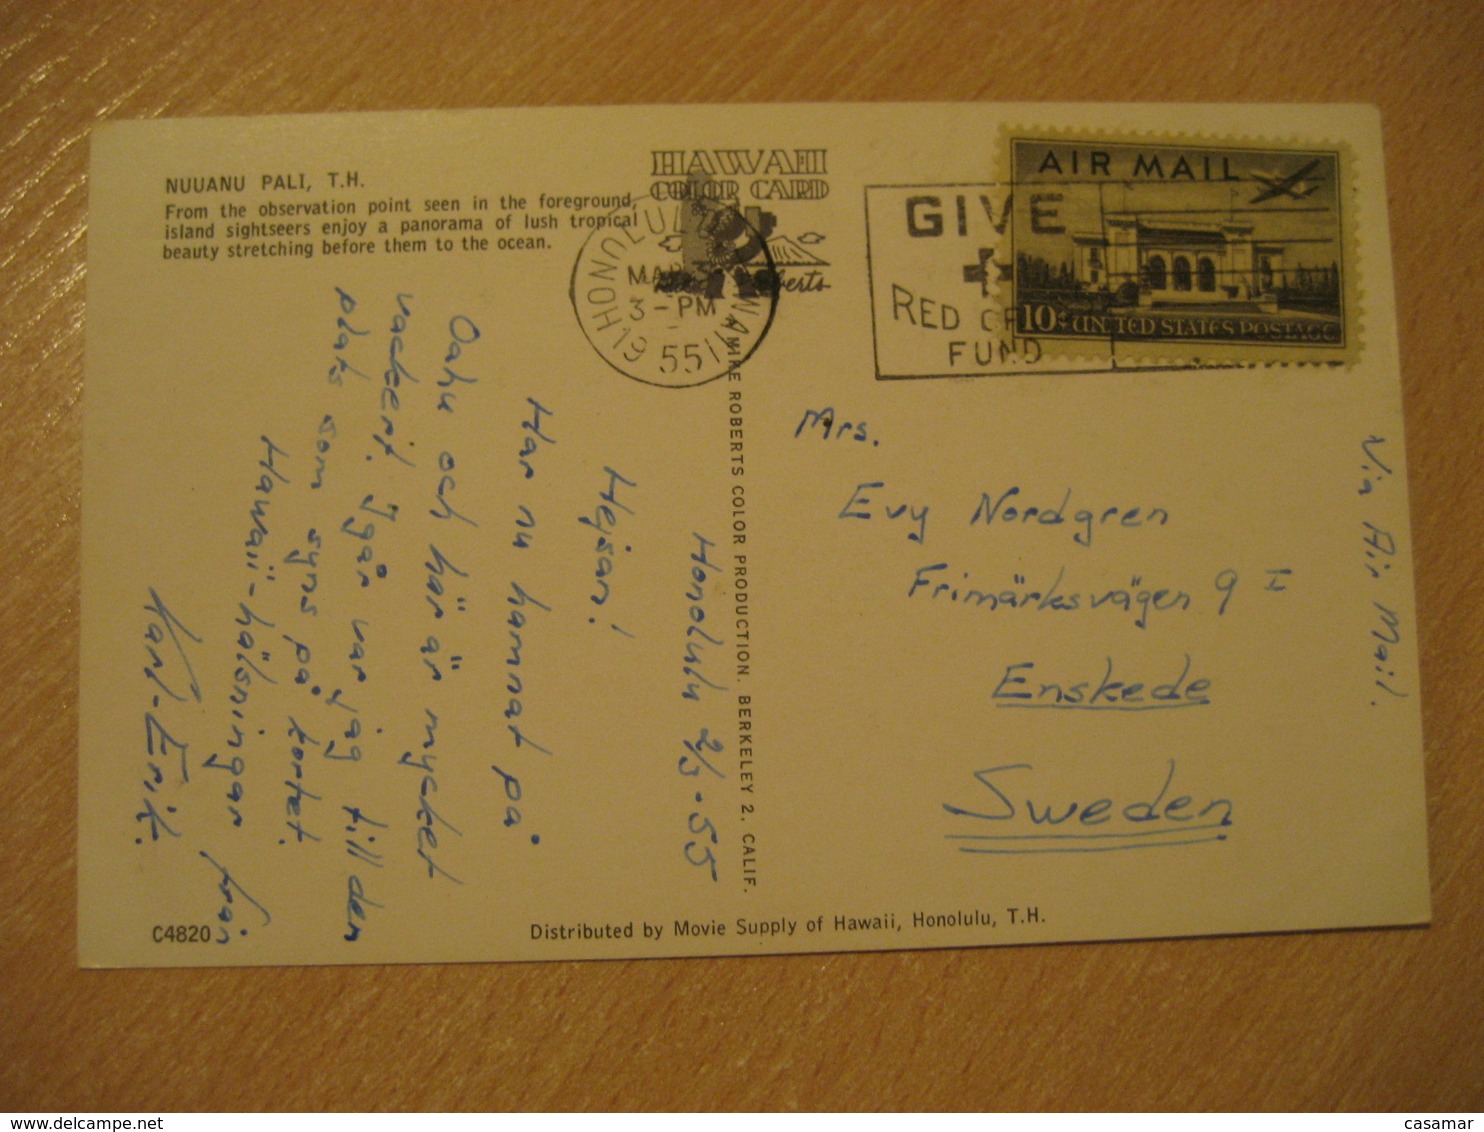 NUUANU PALI, T.H.
From the observation point seen in the foreground,
island sightseers enjoy a panorama of lush tropical
beauty stretching before them to the ocean.
HAWAII
COLOR CARD
HONOLULU
HAWAII
MAR 3
3 - PM
1955
GIVE
RED CROSS
FUND
AIR MAIL
10¢ UNITED STATES POSTAGE
Honolulu 2/3-55
Hejsan!
Har nu hamnat på
Oahu och här är mycket
vackert. Igår var jag till den
plats som syns på kortet.
Hawaii-hälsningar från
Karl-Erik.
MIKE ROBERTS COLOR PRODUCTION. BERKELEY 2. CALIF.
Mrs.
Evy Nordgren
Frimärksvägen 9 I
Enskede
Sweden
Via Air Mail.
C4820
Distributed by Movie Supply of Hawaii, Honolulu, T.H.
casamar